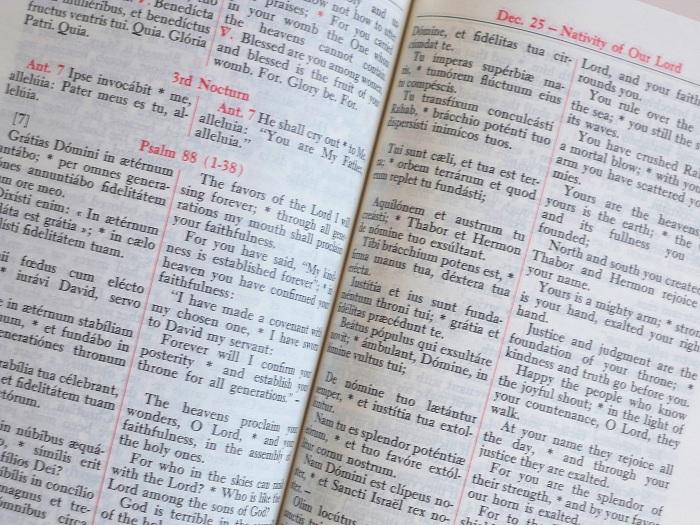 7. Benedícta
muliéribus, et benedíctus
fructus ventris tui. Quia. Glória
Patri. Quia.
praises; * For you carried
in your womb the One whom
the heavens cannot contain.
V. Blessed are you among women,
and blessed is the fruit of your
womb. For. Glory be. For.
3rd Nocturn
Ant. 7 Ipse invocábit * me,
allelúia: Pater meus es tu, al-
lelúia.
Ant. 7 He shall cry out * to Me,
alleluia: "You are My Father,
alleluia."
[7]
Psalm 88 (1-38)
Grátias Dómini in ætérnum
* per omnes genera-
annuntiábo fidelitátem
ore meo.
Dixísti enim: « In ætérnum
est grátia »; * in cælo
fidelitátem tuam.
fœdus cum elécto
* iurávi David, servo
in ætérnum stabíliam
* et fundábo in
generatiónes thronum
tua célebrant,
et fidelitátem tuam
in núbibus æquá-
* símilis erit
fílios Dei?
in concílio
magnus et tre-
ómnibus circa
The favors of the Lord I will
sing forever; * through all gene-
rations my mouth shall proclaim
your faithfulness.
For you have said, "My kind-
ness is established forever"; * in
heaven you have confirmed your
faithfulness:
"I have made a covenant with
my chosen one, * I have sworn
to David my servant:
Forever will I confirm your
posterity * and establish your
throne for all generations." -
The heavens proclaim your
wonders, O Lord, * and your
faithfulness, in the assembly of
the holy ones.
For who in the skies can rank
with the Lord? * Who is like the
Lord among the sons of God?
God is terrible in the
of the holy
Dec. 25 – Nativity of Our Lord
Dómine, et fidélitas tua cir-
cúmdat te.
Tu ímperas supérbiæ ma-
ris, * tumórem flúctuum eius
tu compéscis.
Tu transfíxum conculcásti
Rahab, * bráchio poténti tuo
dispersísti inimícos tuos.
Tui sunt cæli, et tua est ter-
ra; * orbem terrárum et quod
eum replet tu fundásti;
Aquilónem et austrum tu
creásti; * Thabor et Hermon
de nómine tuo exsúltant.
Tibi bráchium potens est, *
firma manus tua, déxtera tua
erécta.
Iustítia et ius sunt funda-
méntum throni tui; * grátia et
fidélitas præcédunt te.
Beátus pópulus qui exsultáre
novit; * ámbulant, Dómine, in
lúmine vultus tui;
De nómine tuo lætántur
semper, * et iustítia tua extol-
lúntur.
Nam tu es splendor poténtiæ
eórum, * et tuo favóre extól-
litur cornu nostrum.
Nam Dómini est clípeus no-
ster, * et Sancti Israël rex no-
ster. –
Olim locútus
Lord, and your faith
rounds you.
You rule over the
the sea; * you still the s
its waves.
You have crushed Rah
a mortal blow; * with yo
arm you have scattered yo
mies.
Yours are the heavens
yours is the earth; * the
and its fullness you
founded;
North and south you created
Thabor and Hermon rejoice
your name.
Yours is a mighty arm; * stron
is your hand, exalted your righ
hand.
Justice and judgment are the
foundation of your throne; *
kindness and truth go before you.
Happy the people who know
the joyful shout; * in the light of
your countenance, O Lord, they
walk.
At your name they rejoice all
the day, * and through your
justice they are exalted.
For you are the splendor of
their strength, * and by your favor
our horn is exalted.
For to the